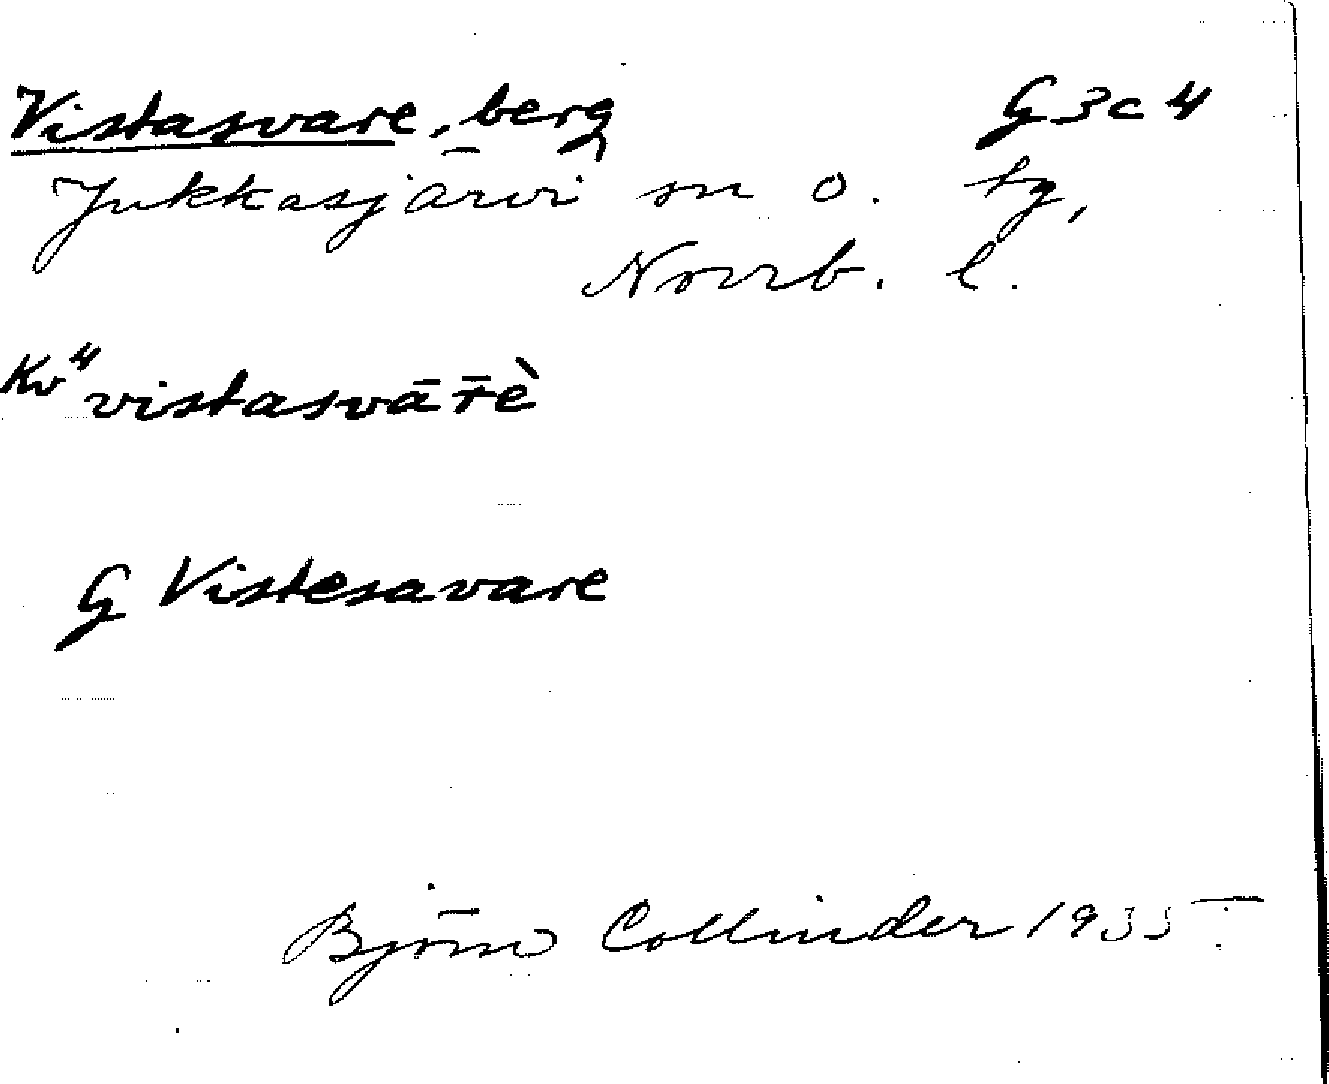 Vistasvare, berg G3c4
Jukkasjärvi sn o. tg,
Norrb. l.
Kv⁴ vistasvār̄è
G Vistesavare
Björn Collinder 1935